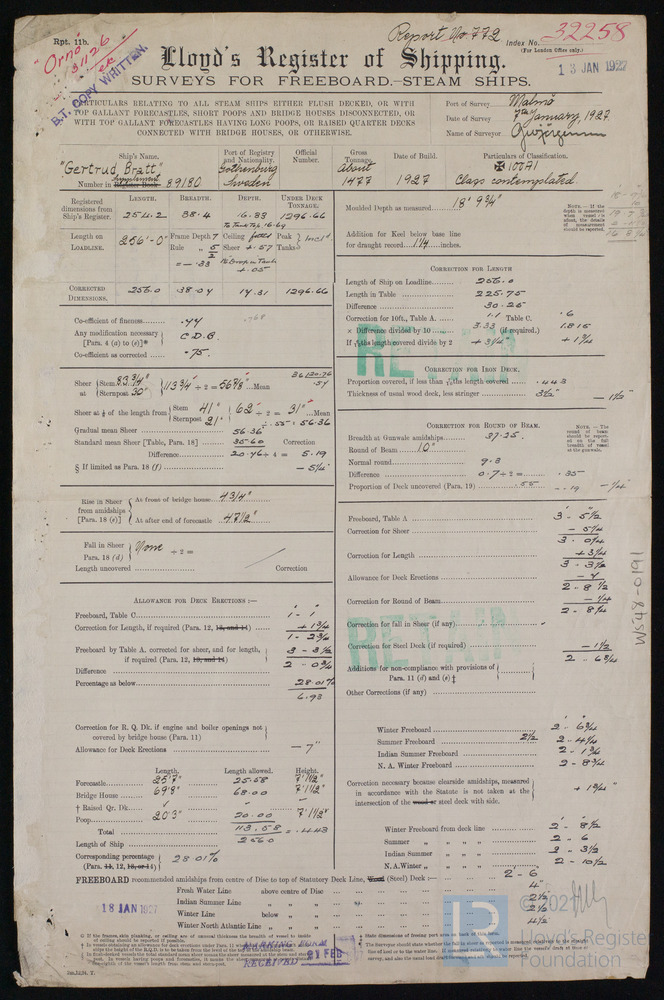 Rpt. 11b.
Report No. 772
Index No. 32258
(For London Office only.)
Lloyd's Register of Shipping.
13 JAN 1927
B.T. COPY WRITTEN
SURVEYS FOR FREEBOARD.—STEAM SHIPS.
PARTICULARS RELATING TO ALL STEAM SHIPS EITHER FLUSH DECKED, OR WITH
TOP GALLANT FORECASTLES, SHORT POOPS AND BRIDGE HOUSES DISCONNECTED, OR
WITH TOP GALLANT FORECASTLES HAVING LONG POOPS, OR RAISED QUARTER DECKS
CONNECTED WITH BRIDGE HOUSES, OR OTHERWISE.
Port of Survey Malmö
Date of Survey 7th January, 1927
Name of Surveyor
Ship's Name. Port of Registry and Nationality. Official Number. Gross Tonnage. Date of Build. Particulars of Classification.
"Gertrud Bratt" Gothenburg Sweden About 1477 1927 100A1
Class contemplated.
Number in Register Book 89180
Registered dimensions from Ship's Register. LENGTH. BREADTH. DEPTH. UNDER DECK TONNAGE.
254.2 38.4 16.83 1296.66
Moulded Depth as measured 18' 9¾"
Addition for Keel below base line
for draught record 1¼ inches.
NOTE.—If the depth is measured when vessel is afloat, the details of measurement should be reported.
Length on LOADLINE. 256'-0" Frame Depth 7 Ceiling fitted Peak Tanks incl'd
Rule Sheer + .57
CORRECTED DIMENSIONS. 256.0 38.04 17.31 1296.66
CORRECTION FOR LENGTH
Length of Ship on Loadline 256.0
Length in Table 225.75
Difference 30.25
Correction for 10ft., Table A. 1.1 Table C. .6
× Difference divided by 10 3.33 (if required.) 1.815
If 6/10ths length covered divide by 2 + 3¼ + 1¾
Co-efficient of fineness .77
Any modification necessary [Para. 4 (a) to (e)]* C.D.B.
Co-efficient as corrected .75
Sheer at Stem 83¾" Sternpost 30" 113¾" ÷ 2 = 56⅞" Mean
Sheer at ⅛ of the length from Stem 41" Sternpost 21" 62 ÷ 2 = 31" Mean
÷ .55 = 56.36
Gradual mean Sheer 56.36
Standard mean Sheer [Table, Para. 18] 35.60 Correction
Difference 20.76 ÷ 4 = 5.19
§ If limited as Para. 18 (f) — 5¼
CORRECTION FOR IRON DECK.
Proportion covered, if less than 7/10ths length covered .443
Thickness of usual wood deck, less stringer 3½" — 1½
CORRECTION FOR ROUND OF BEAM.
Breadth at Gunwale amidships 37.25
Round of Beam 10"
Normal round 9.3
Difference 0.7 ÷ 2 = .35
Proportion of Deck uncovered (Para. 19) .55 .19 — ¼
NOTE.—The round of beam should be reported on the full breadth of vessel at the gunwale.
Rise in Sheer from amidships [Para. 18 (e)]
At front of bridge house 4¾"
At after end of forecastle 47½"
Fall in Sheer Para. 18 (d) None ÷ 2 =
Length uncovered Correction
Freeboard, Table A 3 - 5½
Correction for Sheer — 5¼
3 - 0¼
Correction for Length + 3¼
3 - 3½
Allowance for Deck Erections — 7
2 - 8½
Correction for Round of Beam — ¼
2 - 8¼
Correction for fall in Sheer (if any)
Correction for Steel Deck (if required) — 1½
2 - 6¾
Additions for non-compliance with provisions of Para. 11 (d) and (e) ‡
Other Corrections (if any)
ALLOWANCE FOR DECK ERECTIONS :—
Freeboard, Table C 1 - 1
Correction for Length, if required (Para. 12, 13, and 14) + 1¾
1 - 2¾
Freeboard by Table A. corrected for sheer, and for length, if required (Para. 12, 13, and 14) 3 - 3½
Difference 2 - 0¾
Percentage as below 28.01%
6.93
Correction for R. Q. Dk. if engine and boiler openings not covered by bridge house (Para. 11)
Allowance for Deck Erections — 7"
Winter Freeboard 2 - 6¾
Summer Freeboard 2½ 2 - 4¼
Indian Summer Freeboard 2 - 1¾
N. A. Winter Freeboard 2 - 8¾
Correction necessary because clearside amidships, measured in accordance with the Statute is not taken at the intersection of the wood or steel deck with side. + 1¾"
Length. Length allowed. Height.
Forecastle 25'7" 25.58 7'1½"
Bridge House 69'8" 68.00 7'1½"
† Raised Qr. Dk.
Poop 20'3" 20.00 7'1½"
Total 113.58 = .443
Length of Ship 256.0
Corresponding percentage (Para. 11, 12, 13, or 14) 28.01%
Winter Freeboard from deck line 2 - 8½
Summer " " " 2 - 6
Indian Summer " " " 2 - 3½
N.A. Winter " " " 2 - 10½
FREEBOARD recommended amidships from centre of Disc to top of Statutory Deck Line, Wood (Steel) Deck :— 2 - 6
Fresh Water Line above centre of Disc 4"
Indian Summer Line " " 2½
Winter Line below " 2½
Winter North Atlantic Line " " 4½
18 JAN 1927
RETAIN
RETAIN
WS48-0191
RECEIVED 21 FEB
© 2021
LR
Lloyd's Register
Foundation